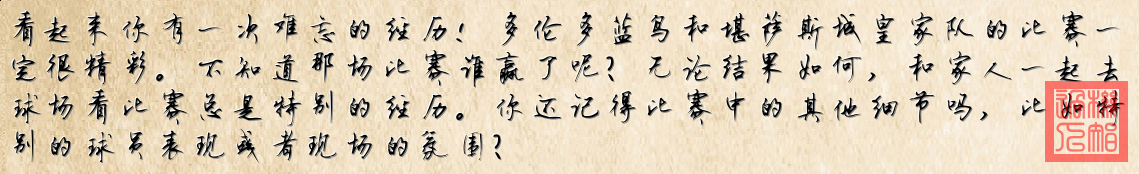 看起来你有一次难忘的经历！多伦多蓝鸟和堪萨斯城皇家队的比赛一
定很精彩。不知道那场比赛谁赢了呢？无论结果如何，和家人一起去
球场看比赛总是特别的经历。你还记得比赛中的其他细节吗，比如特
别的球员表现或者现场的氛围？